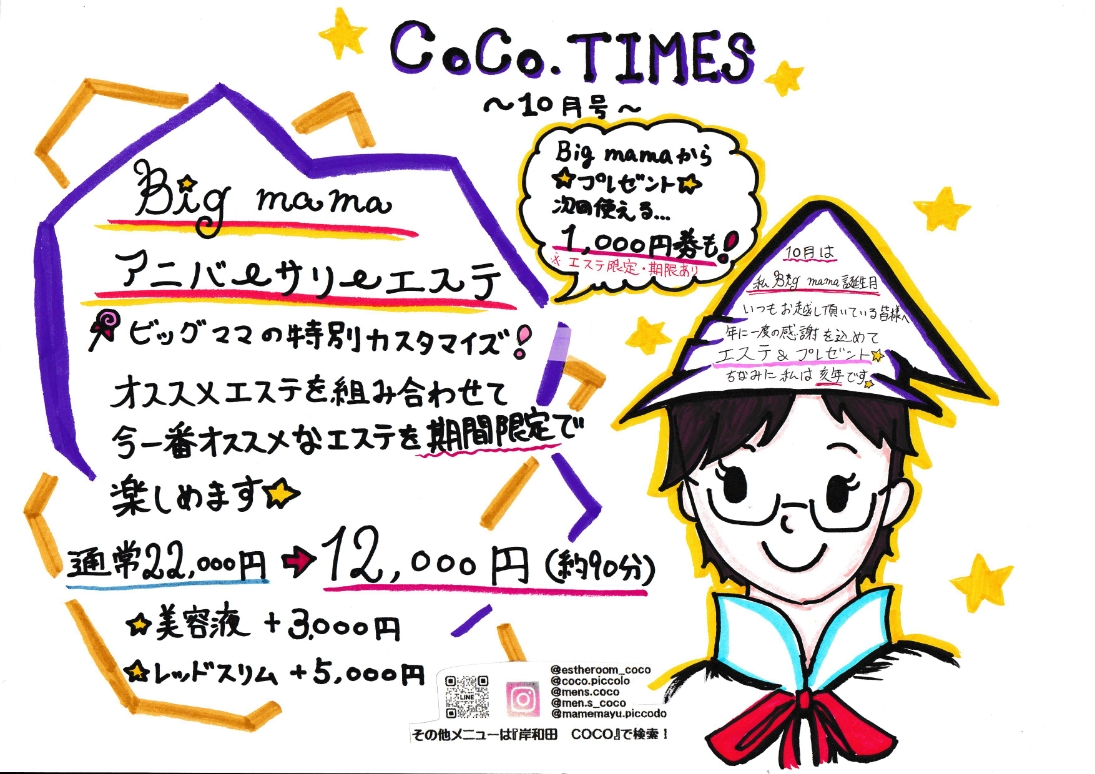 CoCo.TIMES
～10月号～
Big mamaから
プレゼント
次回使える…
1,000円券も!
※エステ限定・期限あり
Big mama
アニバーサリーエステ
ビッグママの特別カスタマイズ!
オススメエステを組み合わせて
今一番オススメなエステを期間限定で
楽しめます
通常22,000円➡12,000円(約90分)
美容液 +3,000円
レッドスリム +5,000円
10月は
私Big mama誕生月
いつもお越し頂いている皆様へ
年に一度の感謝を込めて
エステ&プレゼント
ちなみに私は亥年です
LINE
@estheroom_coco
@coco.piccolo
@mens.coco
@men.s_coco
@mamemayu.piccodo
その他メニューは『岸和田 COCO』で検索！